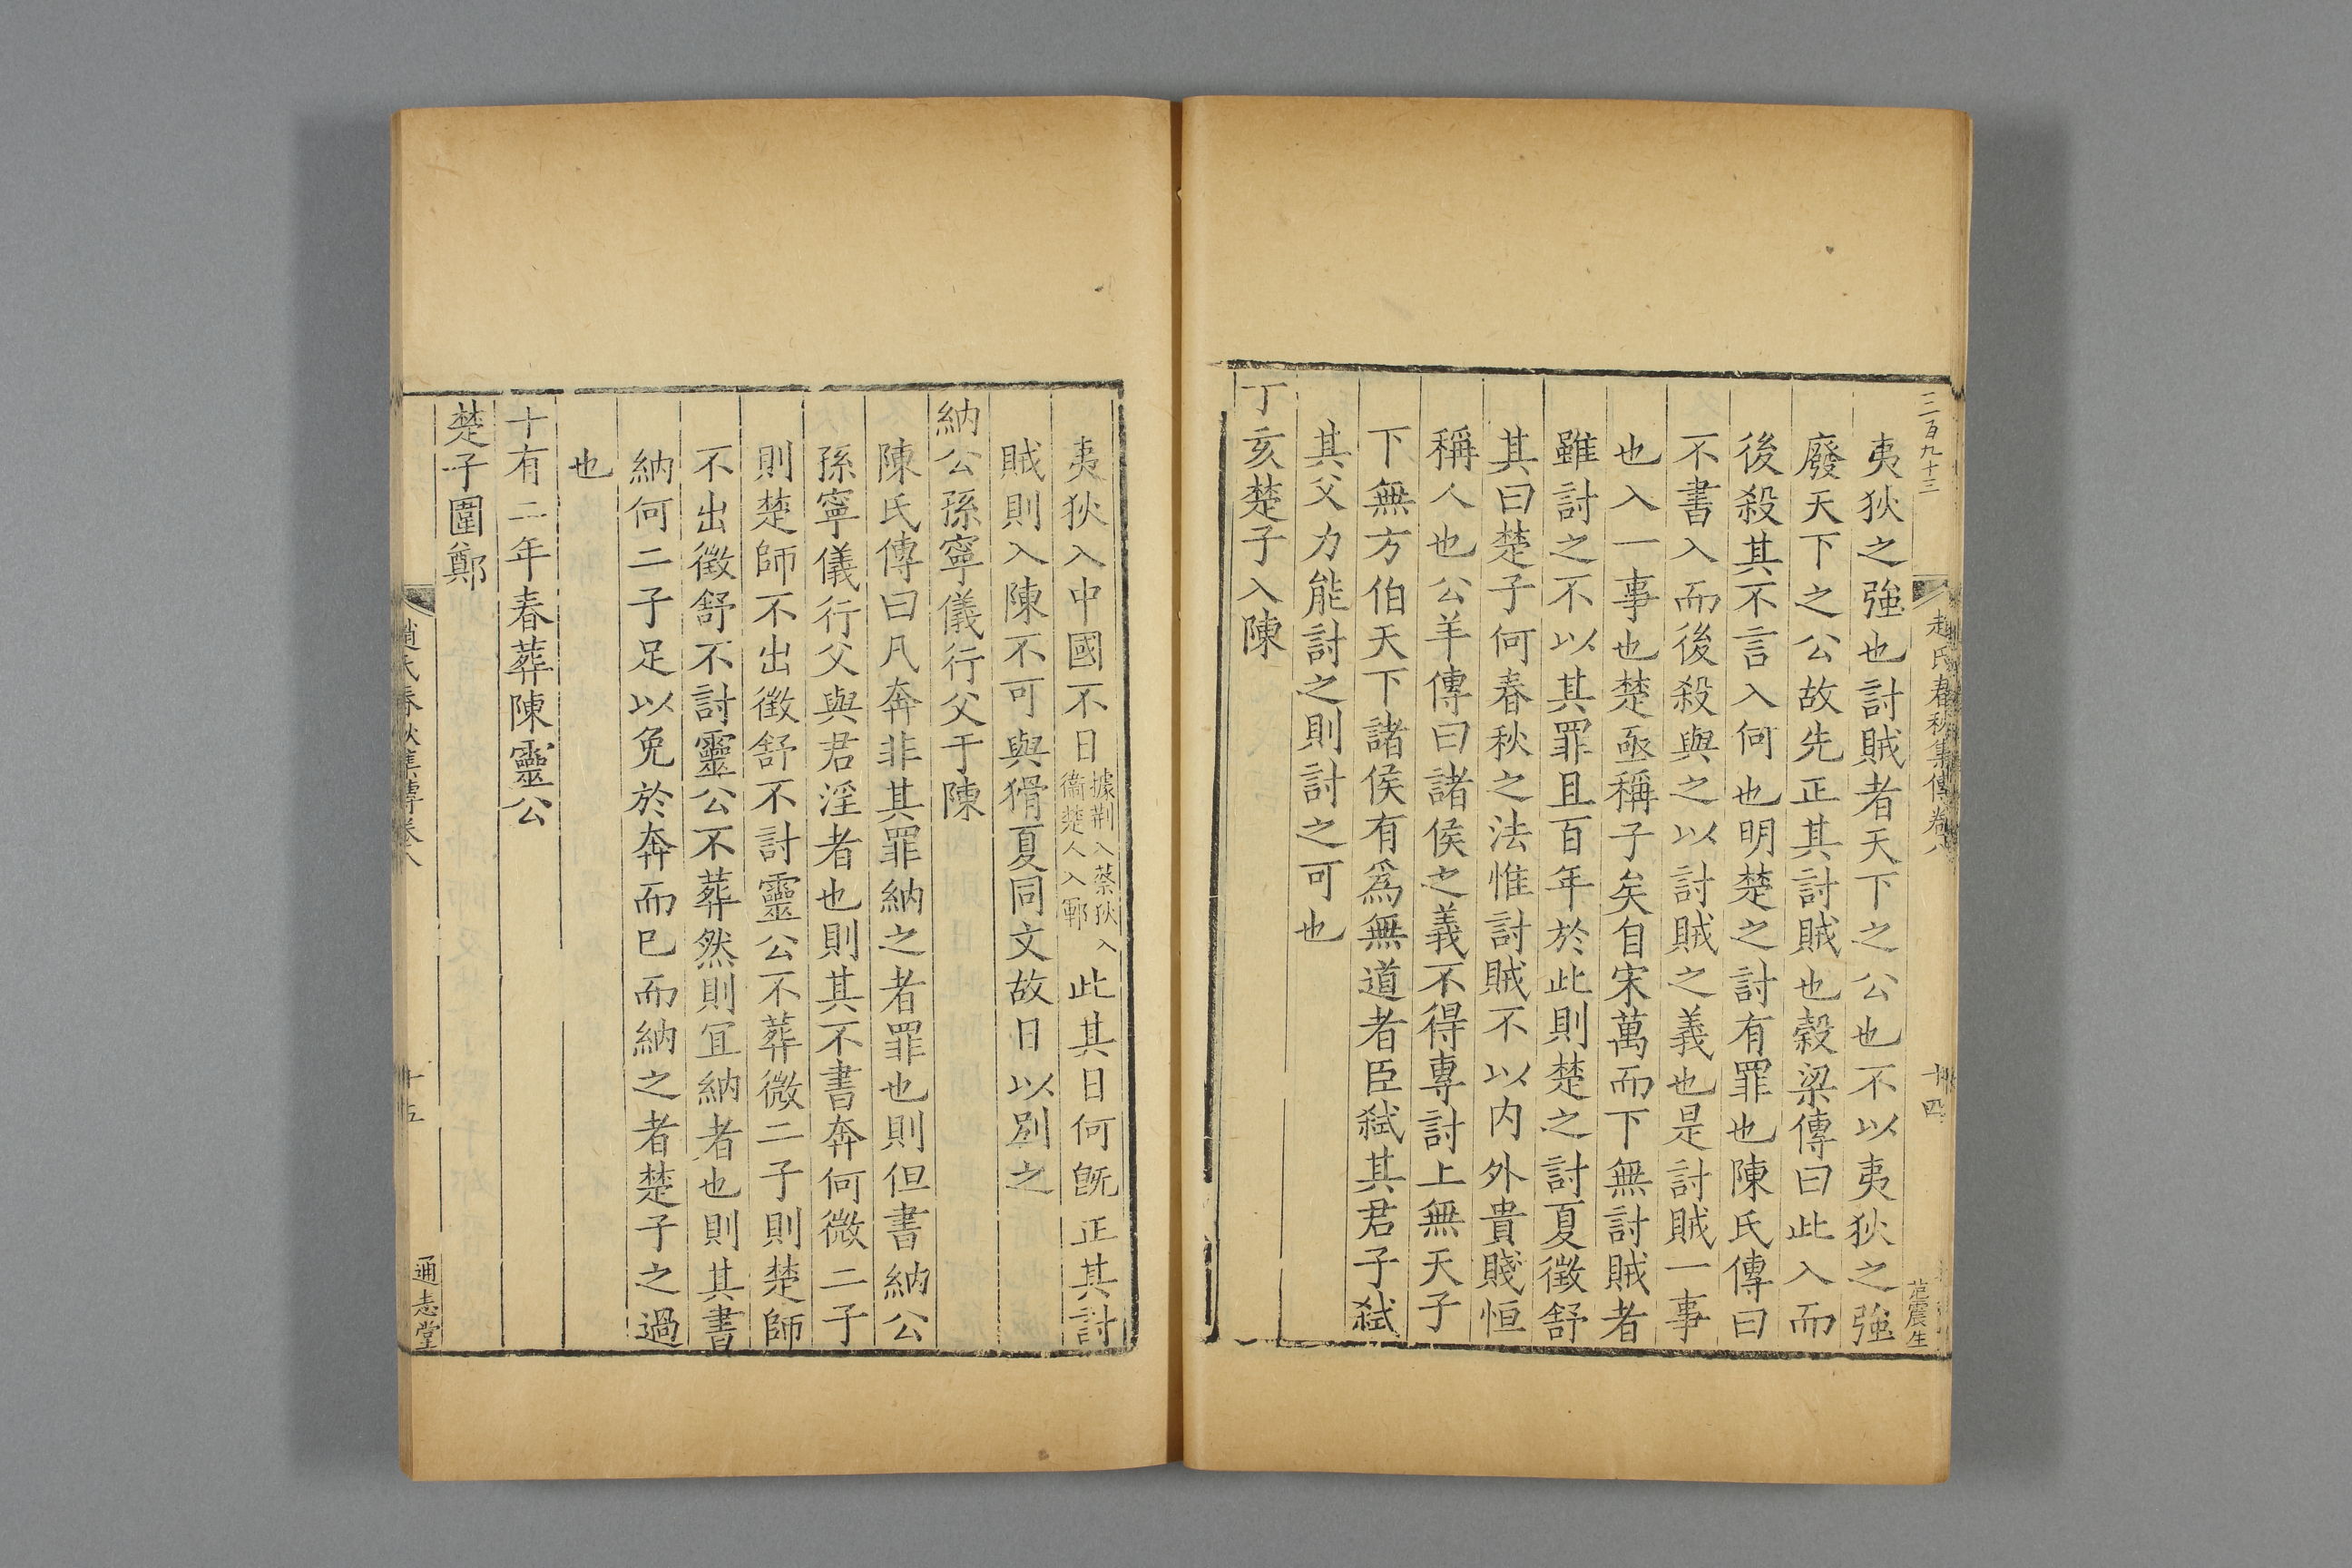 三百九十三
趙氏春秋集傳卷八
十四
夷狄之強也討賊者天下之公也不以夷狄之強
廢天下之公故先正其討賊也穀梁傳曰此入而
後殺其不言入何也明楚之討有罪也陳氏傳曰
不書入而後殺與之以討賊之義也是討賊一事
也入一事也楚亟稱子矣自宋萬而下無討賊者
雖討之不以其罪且百年於此則楚之討夏徵舒
其曰楚子何春秋之法惟討賊不以内外貴賤恒
稱人也公羊傳曰諸侯之義不得專討上無天子
下無方伯天下諸侯有爲無道者臣弑其君子弑
其父力能討之則討之可也
丁亥楚子入陳
夷狄入中國不日據荆入蔡狄入衞楚人入鄆此其日何旣正其討
賊則入陳不可與猾夏同文故日以别之
納公孫寧儀行父于陳
陳氏傳曰凡奔非其罪納之者罪也則但書納公
孫寧儀行父與君淫者也則其不書奔何微二子
則楚師不出徵舒不討靈公不葬微二子則楚師
不出徵舒不討靈公不葬然則冝納者也則其書
納何二子足以免於奔而巳而納之者楚子之過
也
十有二年春葬陳靈公
楚子圍鄭
趙氏春秋集傳卷八
十五
通志堂